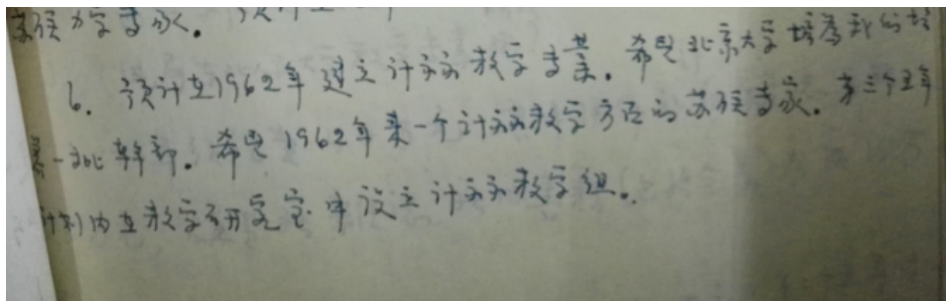 苏联力学专家。预计
6. 预计在1962年建立计祘数学专业。希望北京大学培养我们
一批幹部。希望1962年来一个计祘数学方面的苏联专家。第三个五年
计划内在数学研究室中设立计祘数学组。